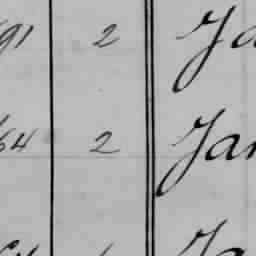 91 2 Ja
64 2 Jan